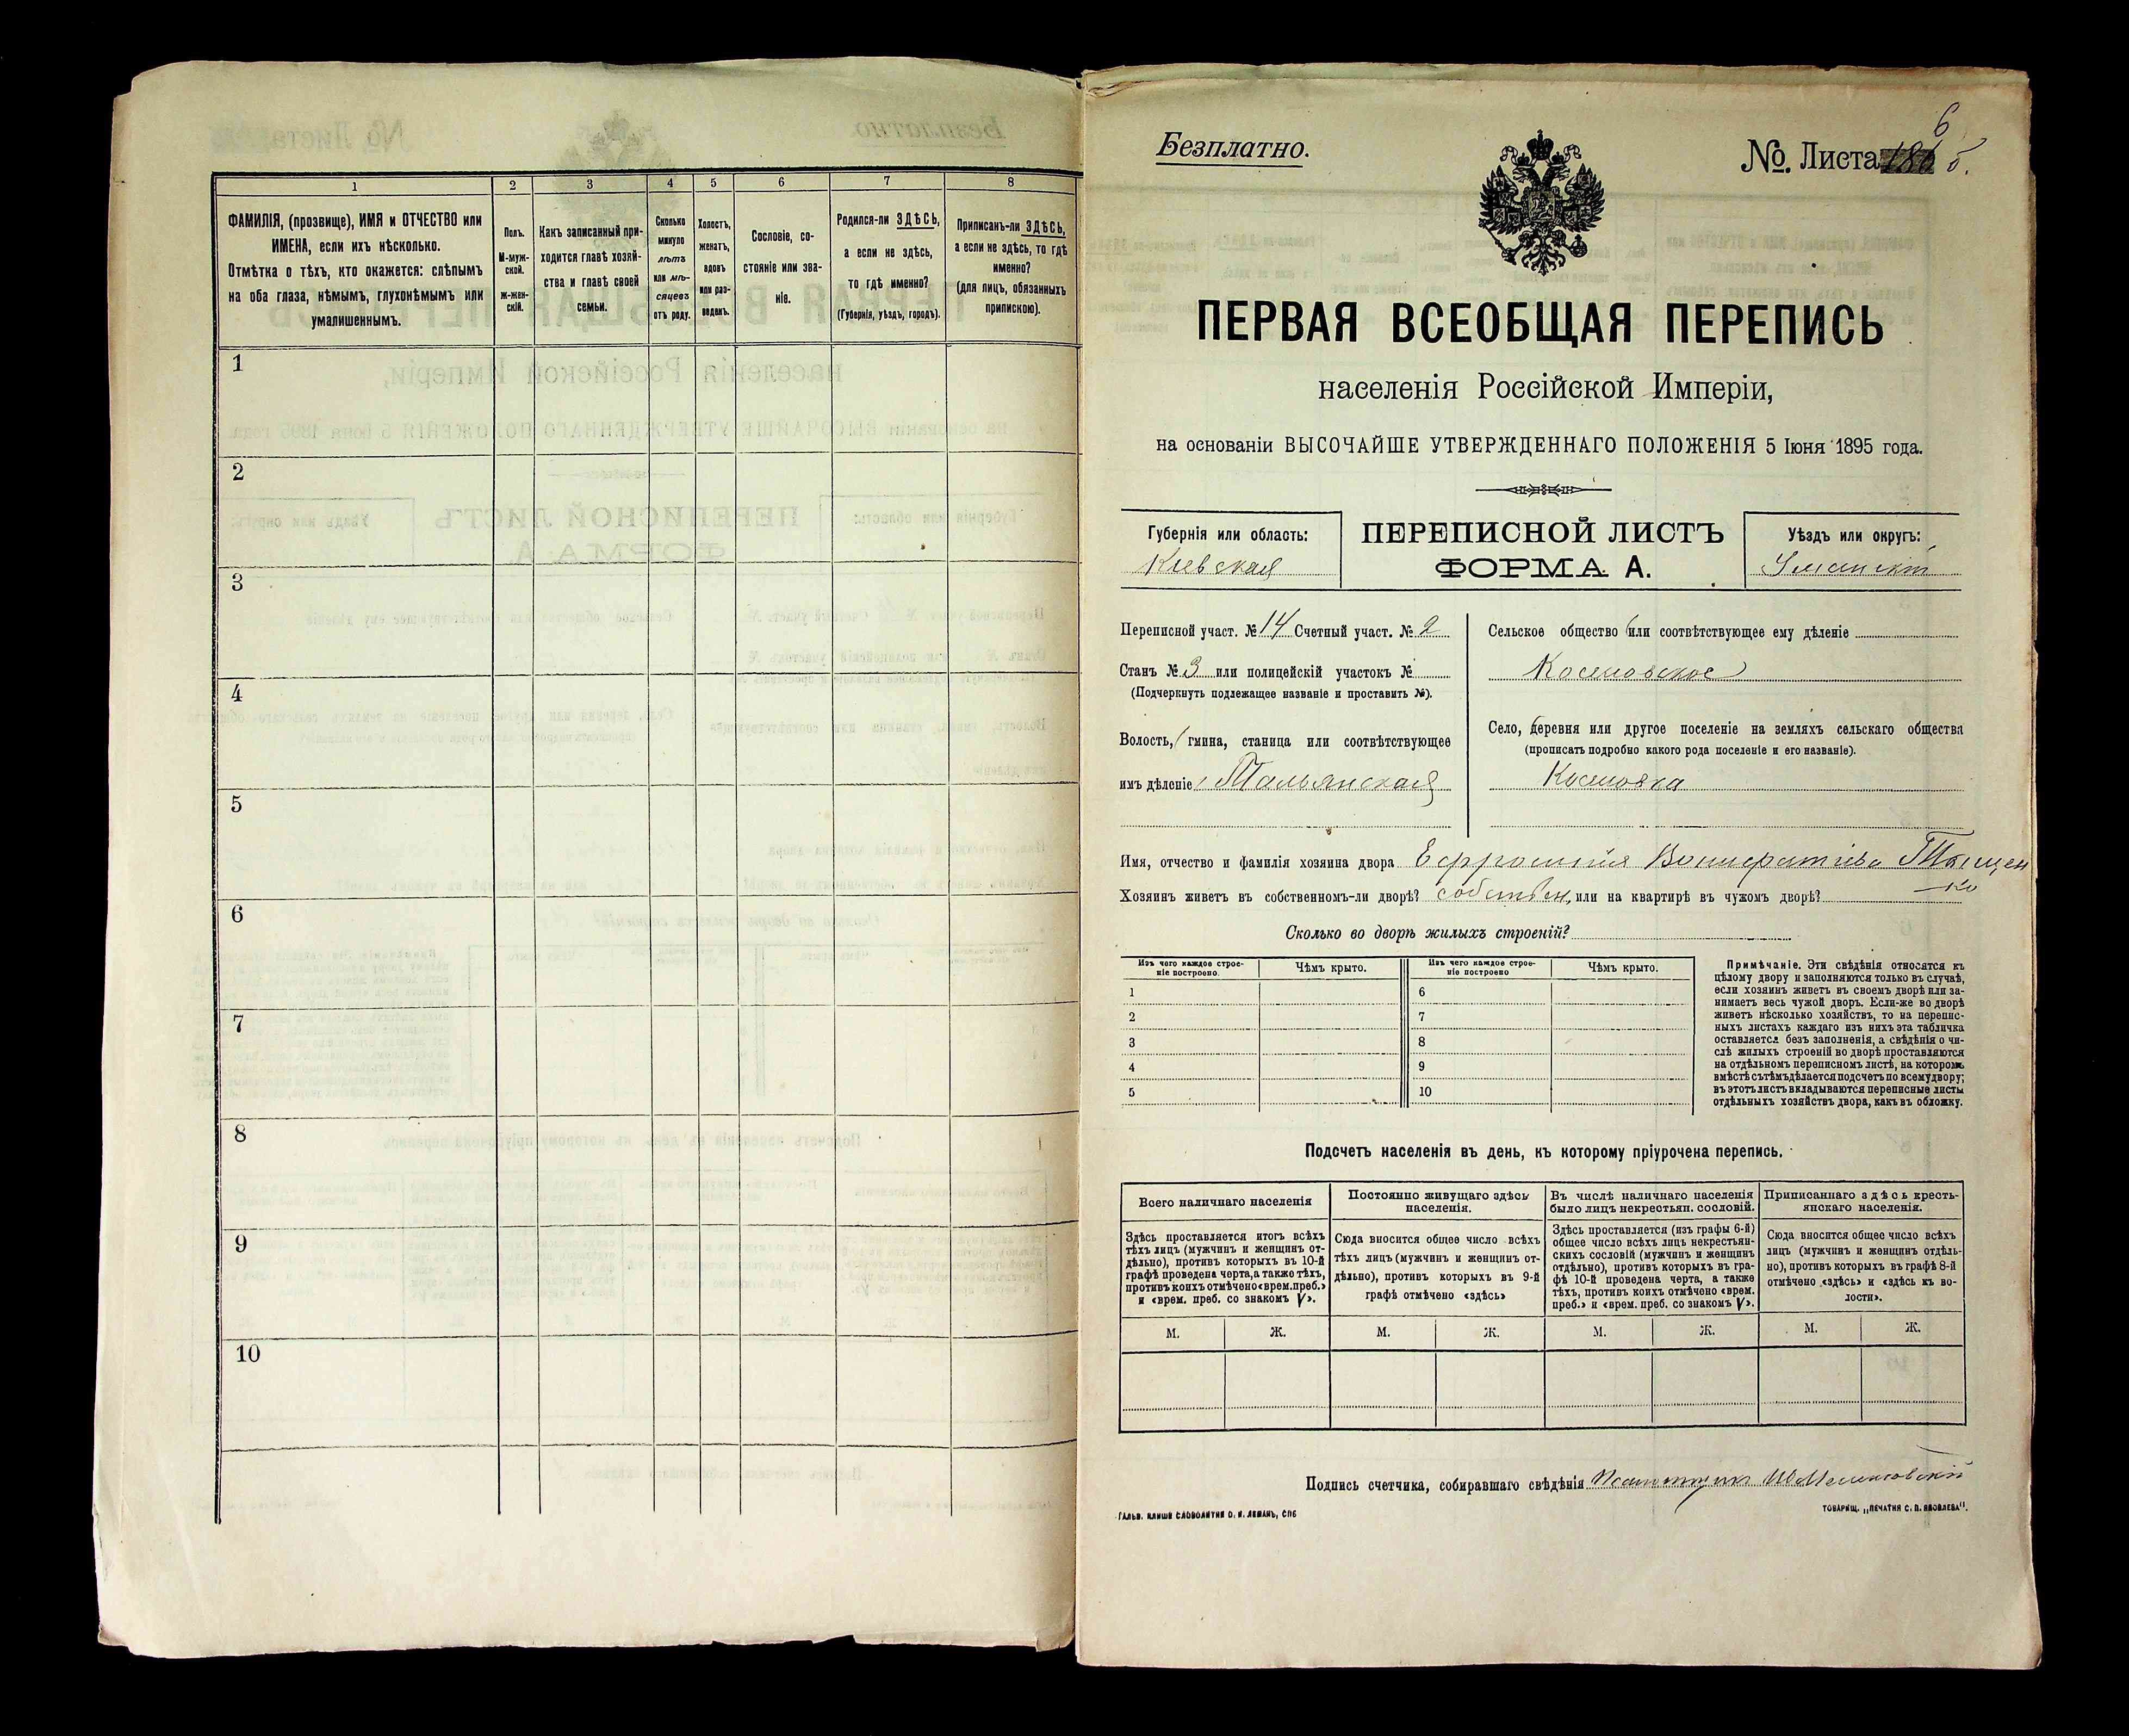 1
2
3
4
5
6
7
8
ФАМИЛІЯ, (прозвище), ИМЯ и ОТЧЕСТВО или
ИМЕНА, если ихъ нѣсколько.
Отмѣтка о тѣхъ, кто окажется: слѣпымъ
на оба глаза, нѣмымъ, глухонѣмымъ или
умалишеннымъ.
Полъ.
М-муж-
ской.
Ж-жен-
скій.
Какъ записанный при-
ходится главѣ хозяй-
ства и главѣ своей
семьи.
Сколько
минуло
лѣтъ
или мѣ-
сяцевъ
отъ роду.
Холостъ,
женатъ,
вдовъ
или раз-
веденъ.
Сословіе, со-
стояніе или зва-
ніе.
Родился-ли ЗДѢСЬ,
а если не здѣсь,
то гдѣ именно?
(Губернія, уѣздъ, городъ).
Приписанъ-ли ЗДѢСЬ,
а если не здѣсь, то гдѣ
именно?
(для лицъ, обязанныхъ
припискою).
1
2
3
4
5
6
7
8
9
10
Безплатно.
№. Листа 6 б.
ПЕРВАЯ ВСЕОБЩАЯ ПЕРЕПИСЬ
населенія Россійской Имперіи,
на основаніи ВЫСОЧАЙШЕ УТВЕРЖДЕННАГО ПОЛОЖЕНІЯ 5 Іюня 1895 года.
Губернія или область:
Кіевская
ПЕРЕПИСНОЙ ЛИСТЪ
ФОРМА А.
Уѣздъ или округъ:
Уманскій
Переписной участ. № 14 Счетный участ. № 2
Станъ № 3 или полицейскій участокъ №
(Подчеркнуть подлежащее названіе и проставить №).
Волость, гмина, станица или соотвѣтствующее
имъ дѣленіе Тальянская
Сельское общество или соотвѣтствующее ему дѣленіе
Косеновское
Село, деревня или другое поселеніе на земляхъ сельскаго общества
(прописать подробно какого рода поселеніе и его названіе).
Косеновка
Имя, отчество и фамилія хозяина двора Ефросинія Вонифатіева Тыщен
ко
Хозяинъ живетъ въ собственномъ-ли дворѣ? собствен, или на квартирѣ въ чужомъ дворѣ?
Сколько во дворѣ жилыхъ строеній?
Изъ чего каждое строе-
ніе построено.
Чѣмъ крыто.
Изъ чего каждое строе-
ніе построено
Чѣмъ крыто.
1
2
3
4
5
6
7
8
9
10
Примѣчаніе. Эти свѣдѣнія относятся къ
цѣлому двору и заполняются только въ случаѣ,
если хозяинъ живетъ въ своемъ дворѣ или за-
нимаетъ весь чужой дворъ. Если-же во дворѣ
живетъ нѣсколько хозяйствъ, то на перепис-
ныхъ листахъ каждаго изъ нихъ эта табличка
оставляется безъ заполненія, а свѣдѣнія о чи-
слѣ жилыхъ строеній во дворѣ проставляются
на отдѣльномъ переписномъ листѣ, на которомъ
вмѣстѣ съ тѣмъ дѣлается подсчетъ по всему двору;
въ этотъ листъ вкладываются переписные листы
отдѣльныхъ хозяйствъ двора, какъ въ обложку.
Подсчетъ населенія въ день, къ которому пріурочена перепись.
Всего наличнаго населенія
Здѣсь проставляется итогъ всѣхъ
тѣхъ лицъ (мужчинъ и женщинъ от-
дѣльно), противъ которыхъ въ 10-й
графѣ проведена черта, а также тѣхъ,
противъ коихъ отмѣчено «врем. преб.»
и «врем. преб. со знакомъ V».
Постоянно живущаго здѣсь
населенія.
Сюда вносится общее число всѣхъ
тѣхъ лицъ (мужчинъ и женщинъ от-
дѣльно), противъ которыхъ въ 9-й
графѣ отмѣчено «здѣсь»
Въ числѣ наличнаго населенія
было лицъ некрестьян. сословій.
Здѣсь проставляется (изъ графы 6-й)
общее число всѣхъ лицъ некрестьян-
скихъ сословій (мужчинъ и женщинъ
отдѣльно), противъ которыхъ въ гра-
фѣ 10-й проведена черта, а также
тѣхъ, противъ коихъ отмѣчено «врем.
преб.» и «врем. преб. со знакомъ V».
Приписаннаго здѣсь кресть-
янскаго населенія.
Сюда вносится общее число всѣхъ
лицъ (мужчинъ и женщинъ отдѣль-
но), противъ которыхъ въ графѣ 8-й
отмѣчено «здѣсь» и «здѣсь къ во-
лости».
М.
Ж.
М.
Ж.
М.
Ж.
М.
Ж.
Подпись счетчика, собиравшаго свѣдѣнія
ГАЛЬВ. КЛИШЕ СЛОВОЛИТНИ О. И. ЛЕМАНЪ, СПБ
ТОВАРИЩ. „ПЕЧАТНЯ С. П. ЯКОВЛЕВА".